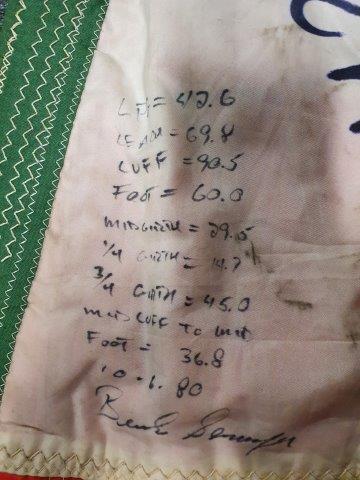 = 42.6
LEACH = 69.8
LUFF = 90.5
FOOT = 60.0
MIDGIRTH = 29.5
1/4 GIRTH = 14.7
3/4 GIRTH = 45.0
MID LUFF TO MID
FOOT = 36.8
10.1.80